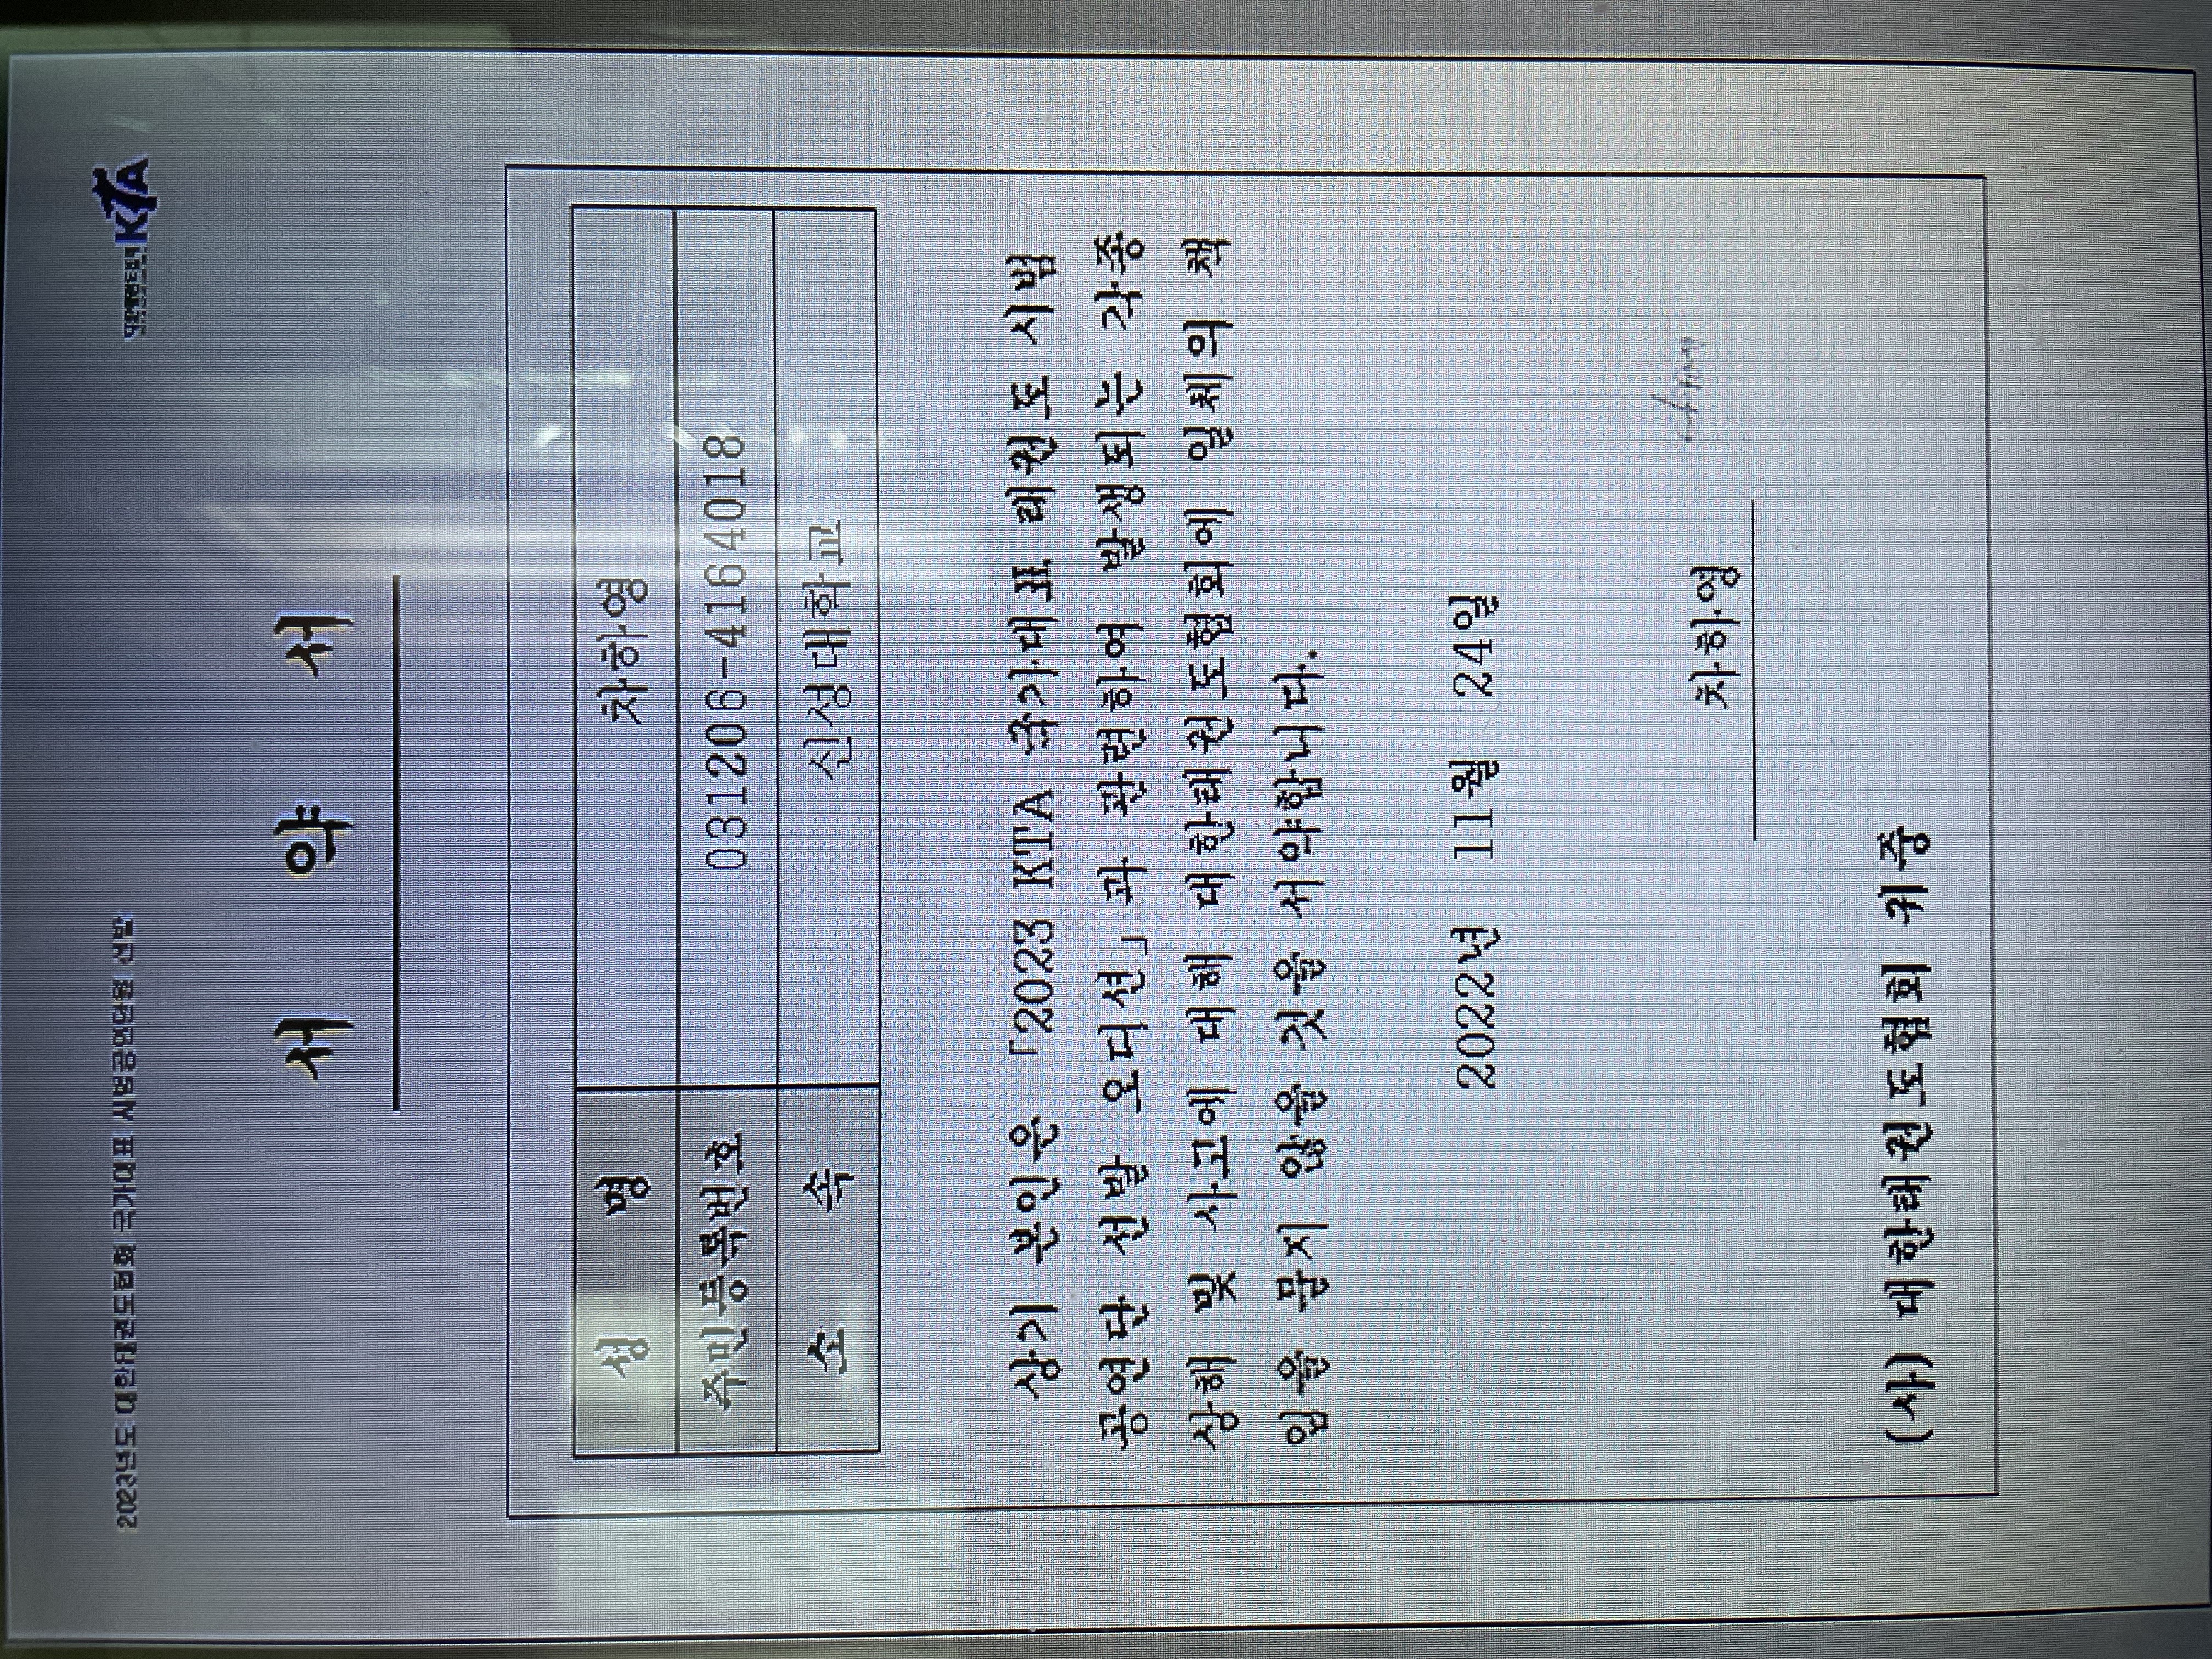 2023년도 대한태권도협회 국가대표 시범공연단원 선발
KTA
서 약 서
성 명 차하영
주민등록번호 031206-4164018
소 속 신성대학교
상기 본인은 「2023 KTA 국가대표 태권도 시범
공연단 선발 오디션」과 관련하여 발생되는 각종
상해 및 사고에 대해 대한태권도협회에 일체의 책
임을 묻지 않을 것을 서약합니다.
2022년 11월 24일
차하영
(사) 대한태권도협회 귀중